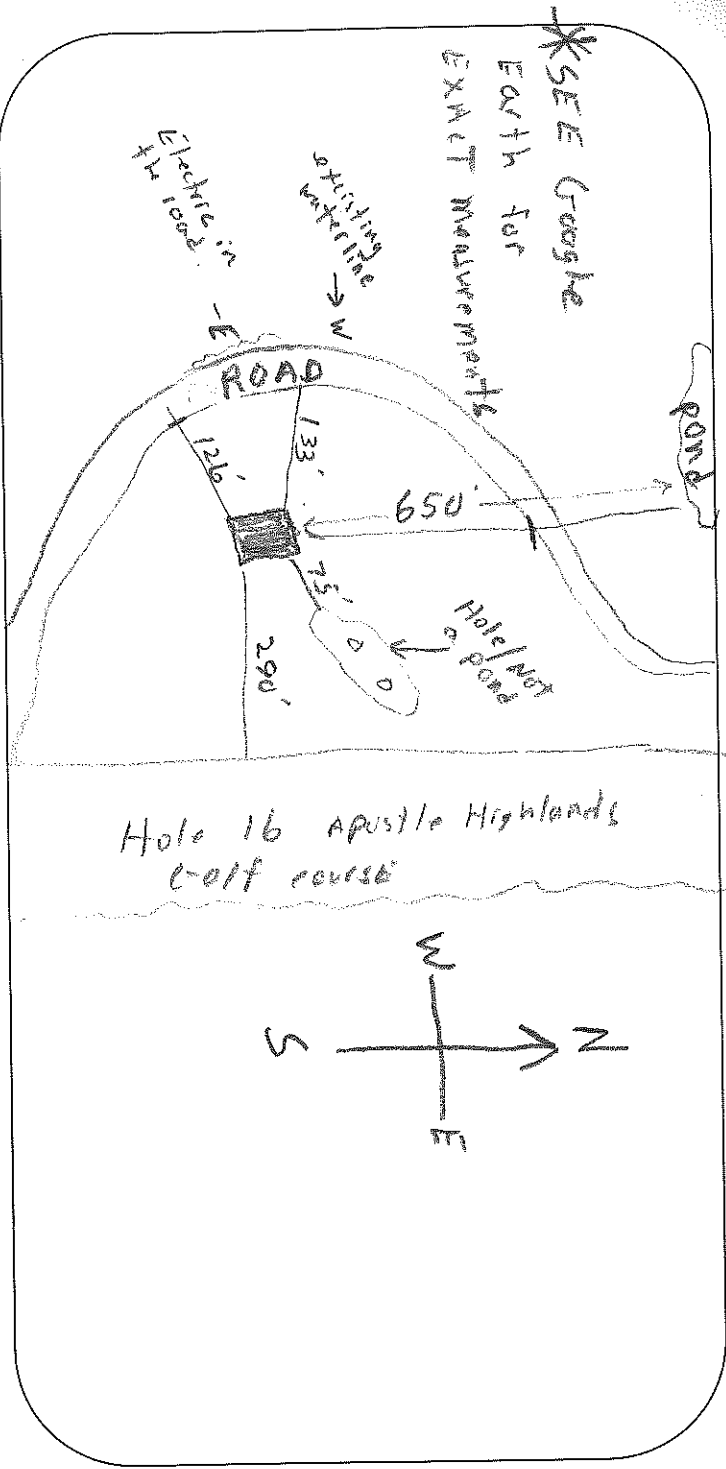 *SEE Google
Earth for
EXACT measurements
pond
existing
waterline
→ W
Electric in
the road.
-E
ROAD
126'
133'
650'
75'
290'
Hole/Not
a pond
Hole 16 Apostle Highlands
Golf course
N
W
E
S